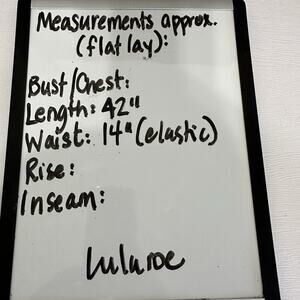 Measurements approx.
(flat lay):
Bust/Chest:
Length: 42"
Waist: 14" (elastic)
Rise:
Inseam:
Lularoe